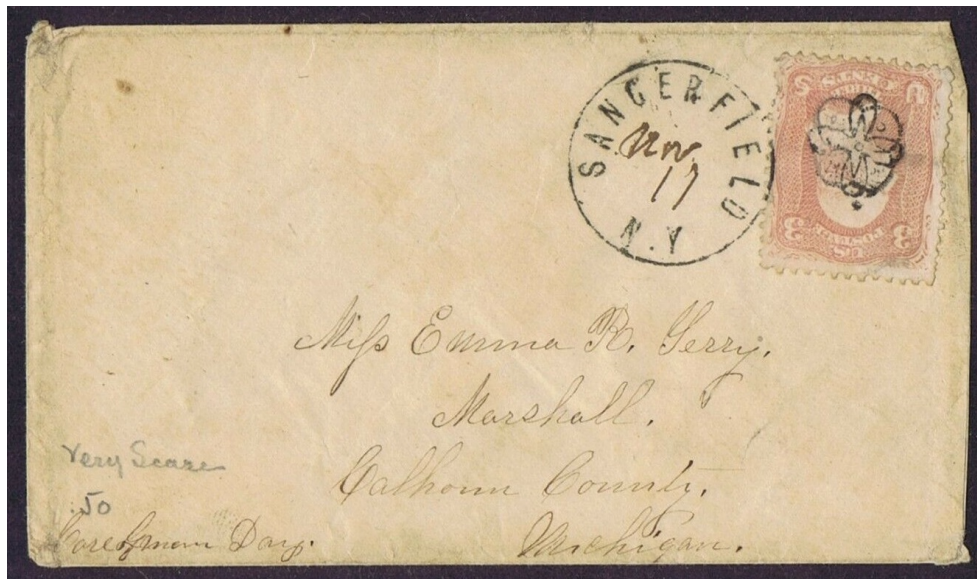 SANGERFIELD
Nov
17
N.Y
3 3
Miss Emma R. Gerry.
Marshall.
Calhoun County.
Michigan.
Very Scarce
.50
Day.